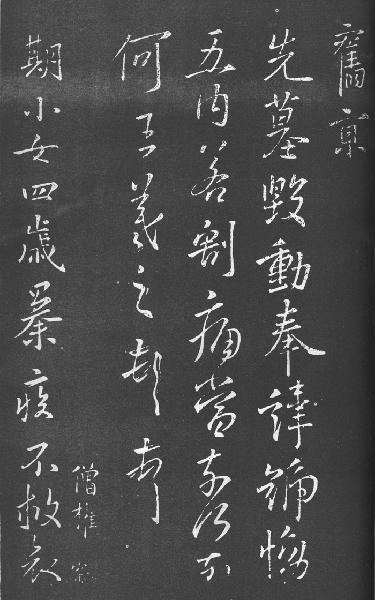 舊京
先墓毀動奉諱號慟
五内若割痛當奈何奈
何王羲之頓首
僧權
期小女四歲暴疾不救哀